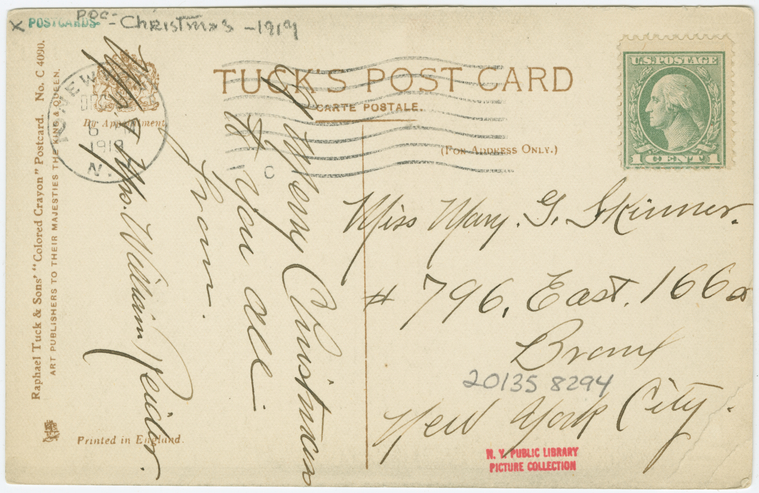 X POSTCARDS-
POC- Christmas - 1919
TUCK'S POST CARD
CARTE POSTALE.
(FOR ADDRESS ONLY.)
By Appointment.
U.S. POSTAGE
1 CENT 1
NEW
DEC
6
191
N.
C
Raphael Tuck & Sons' "Colored Crayon" Postcard. No. C 4090.
ART PUBLISHERS TO THEIR MAJESTIES THE KING & QUEEN.
Printed in England.
A Merry Christmas
to you all
from.
Mr. & Mrs. William Reidor.
Miss Mary. G. Skinner.
# 796, East. 166 St
Bronx
New York City.
20135 8294
N. Y. PUBLIC LIBRARY
PICTURE COLLECTION